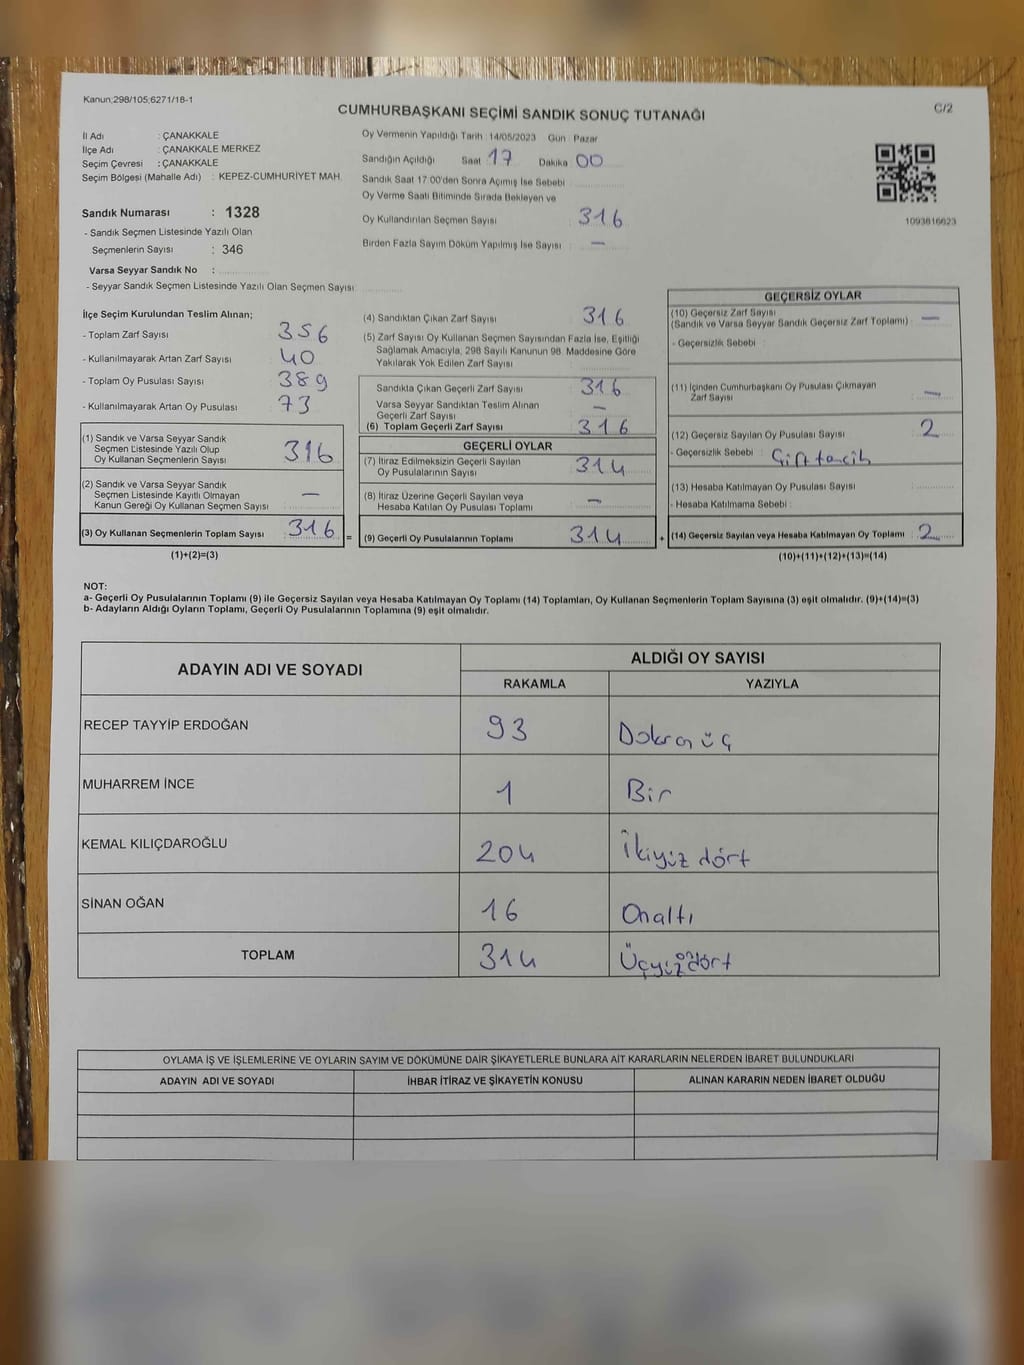 Kanun;298/105;6271/18-1
CUMHURBAŞKANI SEÇİMİ SANDIK SONUÇ TUTANAĞI
C/2
İl Adı : ÇANAKKALE
İlçe Adı : ÇANAKKALE MERKEZ
Seçim Çevresi : ÇANAKKALE
Seçim Bölgesi (Mahalle Adı) : KEPEZ-CUMHURİYET MAH.
Sandık Numarası : 1328
- Sandık Seçmen Listesinde Yazılı Olan
Seçmenlerin Sayısı : 346
Varsa Seyyar Sandık No :
- Seyyar Sandık Seçmen Listesinde Yazılı Olan Seçmen Sayısı
Oy Vermenin Yapıldığı Tarih : 14/05/2023 Gün : Pazar
Sandığın Açıldığı Saat 17 Dakika 00
Sandık Saat 17:00'den Sonra Açımış İse Sebebi
Oy Verme Saati Bitiminde Sırada Bekleyen ve
Oy Kullandırılan Seçmen Sayısı : 316
Birden Fazla Sayım Döküm Yapılmış İse Sayısı : —
1093816623
İlçe Seçim Kurulundan Teslim Alınan;
- Toplam Zarf Sayısı 356
- Kullanılmayarak Artan Zarf Sayısı 40
- Toplam Oy Pusulası Sayısı 389
- Kullanılmayarak Artan Oy Pusulası 73
(1) Sandık ve Varsa Seyyar Sandık
Seçmen Listesinde Yazılı Olup
Oy Kullanan Seçmenlerin Sayısı 316
(2) Sandık ve Varsa Seyyar Sandık
Seçmen Listesinde Kayıtlı Olmayan
Kanun Gereği Oy Kullanan Seçmen Sayısı —
(3) Oy Kullanan Seçmenlerin Toplam Sayısı 316 =
(1)+(2)=(3)
(4) Sandıktan Çıkan Zarf Sayısı 316
(5) Zarf Sayısı Oy Kullanan Seçmen Sayısından Fazla İse, Eşitliği
Sağlamak Amacıyla, 298 Sayılı Kanunun 98. Maddesine Göre
Yakılarak Yok Edilen Zarf Sayısı
Sandıkta Çıkan Geçerli Zarf Sayısı 316
Varsa Seyyar Sandıktan Teslim Alınan
Geçerli Zarf Sayısı —
(6) Toplam Geçerli Zarf Sayısı 316
GEÇERLİ OYLAR
(7) İtiraz Edilmeksizin Geçerli Sayılan
Oy Pusulalarının Sayısı 314
(8) İtiraz Üzerine Geçerli Sayılan veya
Hesaba Katılan Oy Pusulası Toplamı —
(9) Geçerli Oy Pusulalarının Toplamı 314 +
GEÇERSİZ OYLAR
(10) Geçersiz Zarf Sayısı
(Sandık ve Varsa Seyyar Sandık Geçersiz Zarf Toplamı) : —
- Geçersizlik Sebebi :
(11) İçinden Cumhurbaşkanı Oy Pusulası Çıkmayan
Zarf Sayısı : —
(12) Geçersiz Sayılan Oy Pusulası Sayısı : 2
- Geçersizlik Sebebi : Çift tercih
(13) Hesaba Katılmayan Oy Pusulası Sayısı :
- Hesaba Katılmama Sebebi :
(14) Geçersiz Sayılan veya Hesaba Katılmayan Oy Toplamı : 2
(10)+(11)+(12)+(13)=(14)
NOT:
a- Geçerli Oy Pusulalarının Toplamı (9) ile Geçersiz Sayılan veya Hesaba Katılmayan Oy Toplamı (14) Toplamları, Oy Kullanan Seçmenlerin Toplam Sayısına (3) eşit olmalıdır. (9)+(14)=(3)
b- Adayların Aldığı Oyların Toplamı, Geçerli Oy Pusulalarının Toplamına (9) eşit olmalıdır.
ADAYIN ADI VE SOYADI
ALDIĞI OY SAYISI
RAKAMLA YAZIYLA
RECEP TAYYİP ERDOĞAN 93 Doksan üç
MUHARREM İNCE 1 Bir
KEMAL KILIÇDAROĞLU 204 İkiyüz dört
SİNAN OĞAN 16 Onaltı
TOPLAM 314 Üçyüz on dört
OYLAMA İŞ VE İŞLEMLERİNE VE OYLARIN SAYIM VE DÖKÜMÜNE DAİR ŞİKAYETLERLE BUNLARA AİT KARARLARIN NELERDEN İBARET BULUNDUKLARI
ADAYIN ADI VE SOYADI İHBAR İTİRAZ VE ŞİKAYETİN KONUSU ALINAN KARARIN NEDEN İBARET OLDUĞU